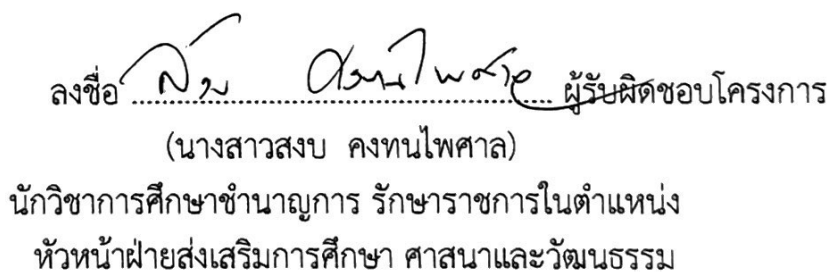 ลงชื่อ สงบ คงทนไพศาล ผู้รับผิดชอบโครงการ
(นางสาวสงบ คงทนไพศาล)
นักวิชาการศึกษาชำนาญการ รักษาราชการในตำแหน่ง
หัวหน้าฝ่ายส่งเสริมการศึกษา ศาสนาและวัฒนธรรม